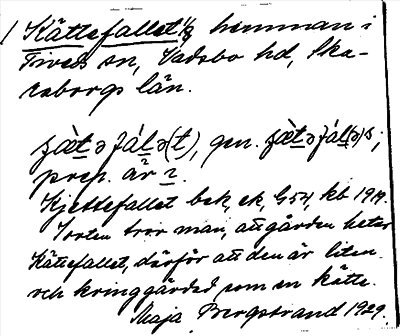 1 Kättefallet 1/8 hemman i
Tiveds sn, Vadsbo hd, Ska-
raborgs län.
ʒæ̀tə fálə(t), gen. ʒæ̀tə fálə)s;
prep. är i.
Kjettefallet bek, ek, G 54, kb 1919.
I orten tror man, att gården heter
Kättefallet, därför att den är liten
och kringgärdad som en kätte.
Maja Bergstrand 1929.